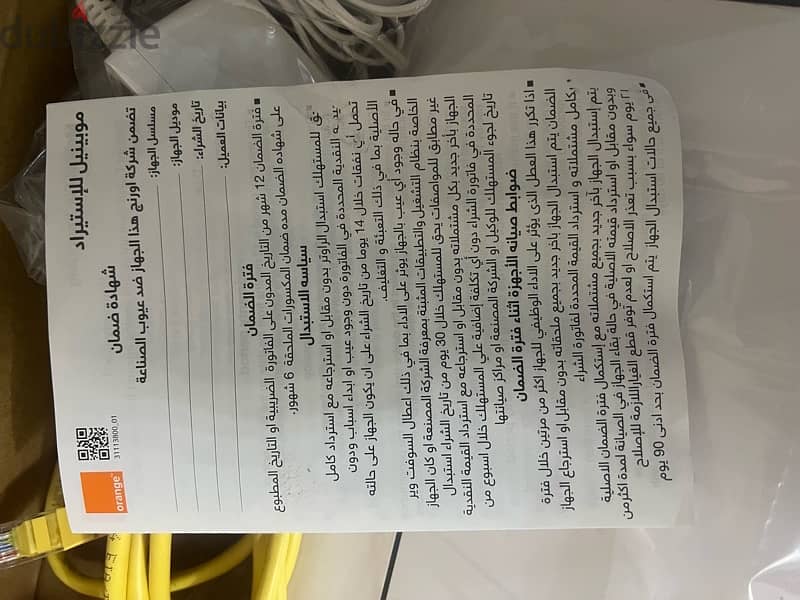 dubizzle
orange™
31113800_01
موبينيل للإستيراد
شهادة ضمان
تضمن شركة اورنج هذا الجهاز ضد عيوب الصناعة
مسلسل الجهاز:
موديل الجهاز:
تاريخ الشراء:
بيانات العميل:
فترة الضمان
▪ فترة الضمان 12 شهر من التاريخ المدون على الفاتورة الضريبية او التاريخ المطبوع
على شهاده الضمان مده ضمان المكسورات الملحقة 6 شهور.
سياسه الاستبدال
حق للمستهلك استبدال الراوتر بدون مقابل او استرجاعة مع استرداد كامل
النقدية المحددة في الفاتورة دون وجود عيب او ابداء اسباب ودون
تحمل أي نفقات خلال 14 يوما من تاريخ الشراء على ان يكون الجهاز على حالته
الأصلية بما في ذلك التعبئة و التغليف.
▪ في حاله وجود أي عيب بالجهاز يوثر على الاداء بما في ذلك اعطال السوفت وير
الخاصة بنظام التشغيل والتطبيقات المثبتة بمعرفة الشركة المصنعة او كان الجهاز
غير مطابق للمواصفات يحق للمستهلك خلال 30 يوم من تاريخ الشراء استبدال
الجهاز بآخر جديد بكل مشتملاته بدون مقابل او استرجاعه مع استرداد القيمة النقدية
المحددة في فاتورة الشراء دون أي تكلفة إضافية على المستهلك خلال اسبوع من
تاريخ لجوء المستهلك للوكيل او الشركة المصنعة او مراكز صيانتها
ضوابط صيانه الأجهزة اثناء فترة الضمان
▪ اذا تكرر هذا العطل الذى يؤثر على الاداء الوظيفي الجهاز اكثر من مرتين خلال فترة
الضمان يتم استبدال الجهاز بآخر جديد بجميع ملحقاته بدون مقابل او استرجاع الجهاز
بكامل مشتملاته و استرداد القيمة المحددة لفاتورة الشراء
يتم إستبدال الجهاز بآخر جديد بجميع مشتملاته مع إستكمال فترة الضمان الاصلية
وبدون مقابل او استرداد قيمته الاصلية في حالة بقاء الجهاز في الصيانة لمدة اكثر من
يوم سواء بسبب تعذر الاصلاح او لعدم توفر قطع الغيار اللازمة للإصلاح
▪ في جميع حالات استبدال الجهاز يتم إستكمال فترة الضمان بحد ادنى 90 يوم